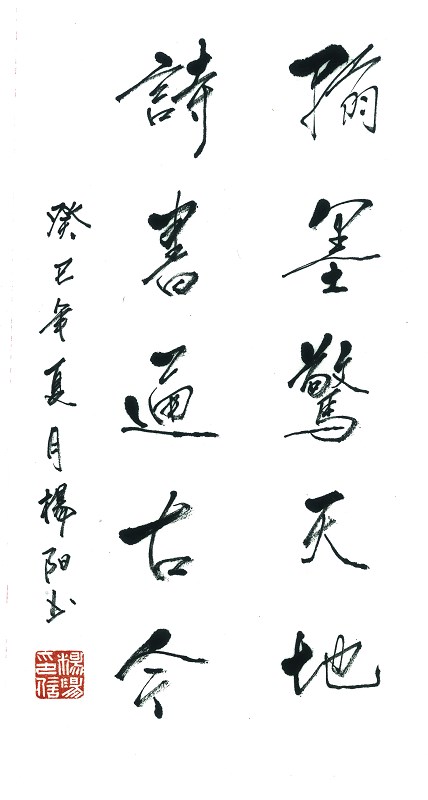 翰墨驚天地
詩書通古今
癸巳年夏月楊陽书
楊陽
信印